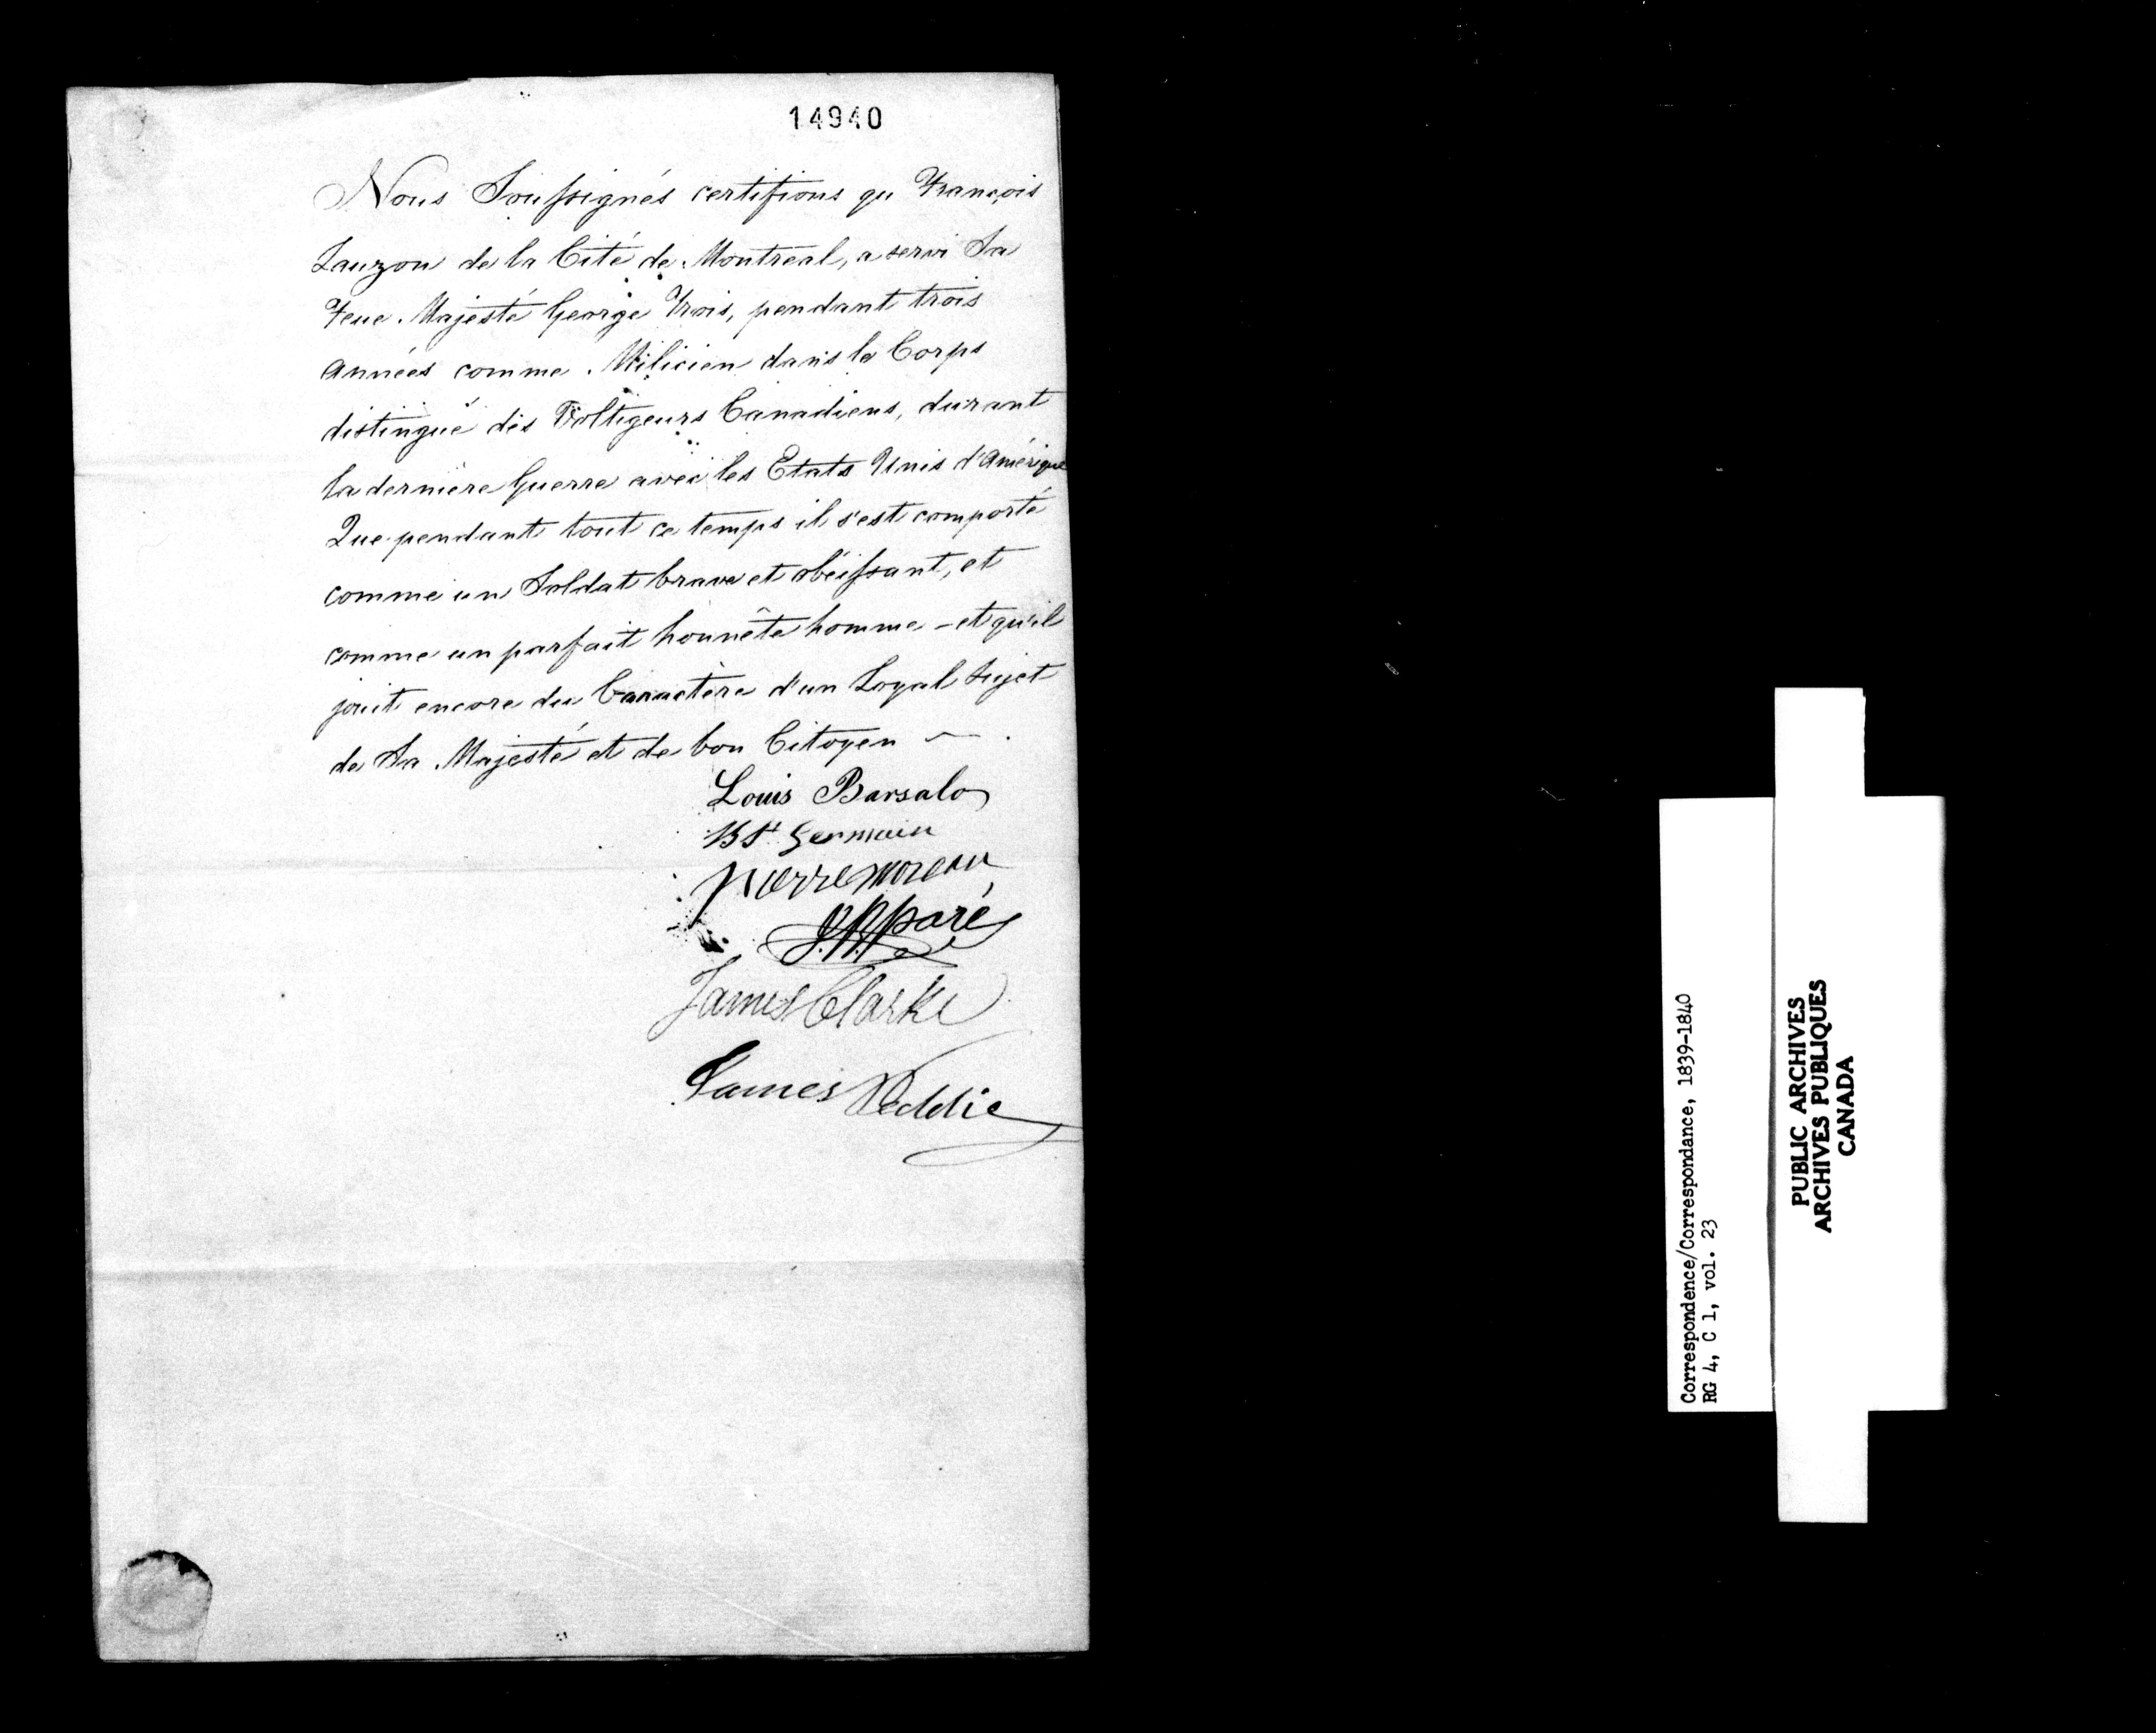 14940
Nous Soussignés certifions qu François
Lauzon de la Cité de Montreal, a servi Sa
Feue Majesté George Trois, pendant trois
années comme Milicien dans le Corps
distingué des Voltigeurs Canadiens, durant
la dernière Guerre avec les Etats Unis d'Amérique
Que pendant tout ce temps il s'est comporté
comme un Soldat brave et obéissant, et
comme un parfait honnête homme - et qu'il
jouit encore du Caractère d'un Loyal Sujet
de Sa Majesté et de bon Citoyen
Louis Barsalo
B St Germain
pierre moreau
J. Bpt paré
James Clarke
James Peddie
Correspondence/Correspondance, 1839-1840
RG 4, C 1, vol. 23
PUBLIC ARCHIVES
ARCHIVES PUBLIQUES
CANADA